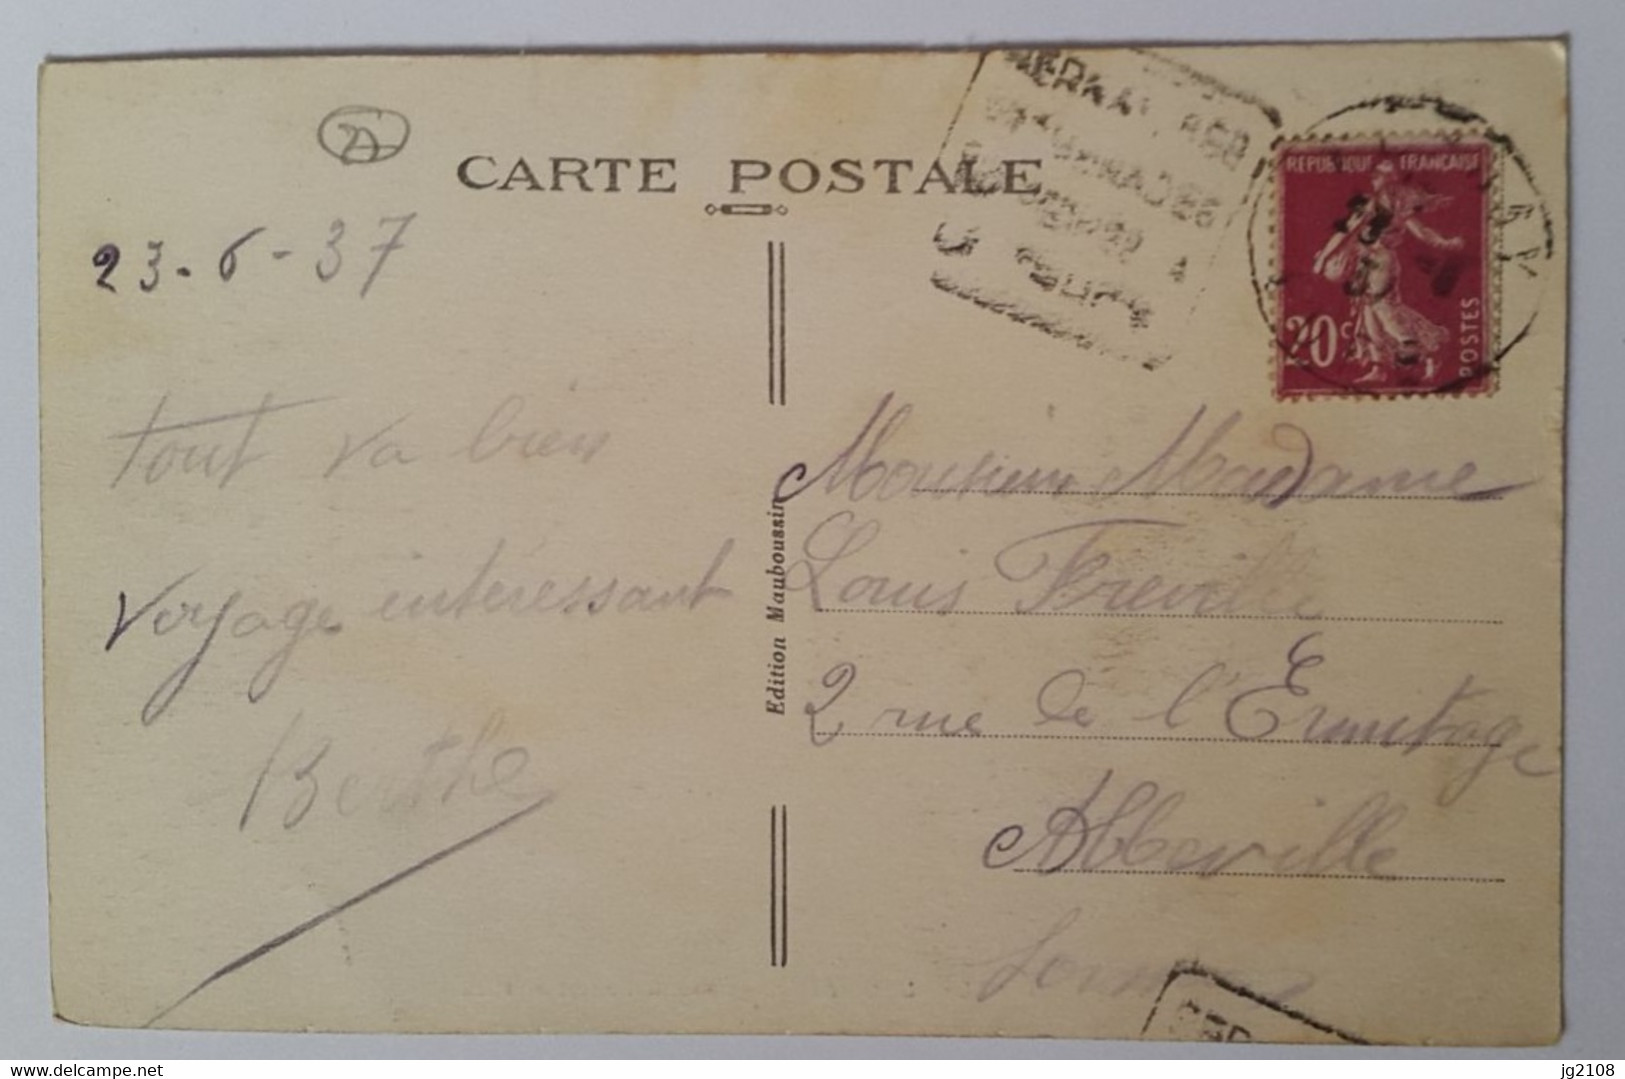 CARTE POSTALE
23-6-37
tout va bien
voyage intéressant
Berthe
Edition Mauboussin
RÉPUBLIQUE FRANÇAISE
20c
POSTES
23
Monsieur Madame
Louis Freville
2 rue de l'Ermitage
Abbeville
Somme
jg2108